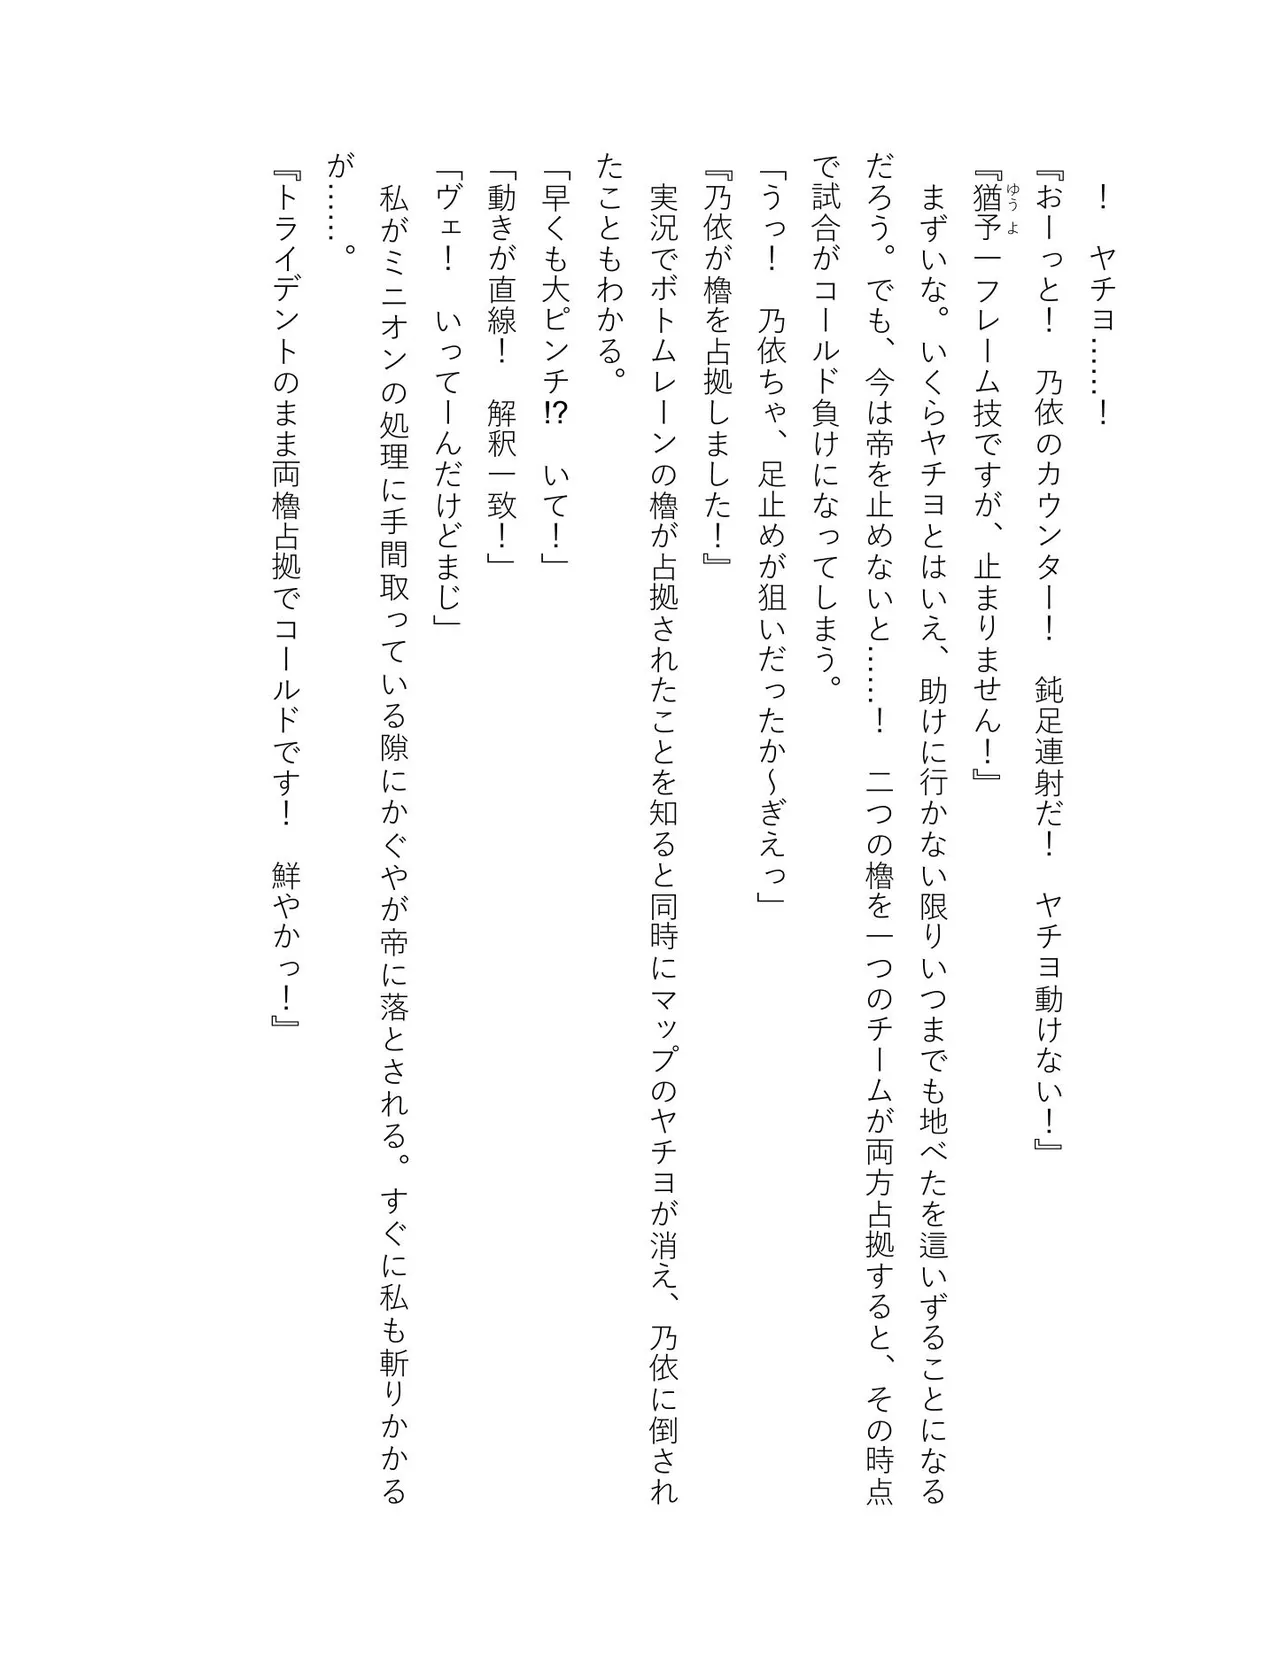 ！　ヤチヨ……！
『おーっと！　乃依のカウンター！　鈍足連射だ！　ヤチヨ動けない！』
『猶予一フレーム技ですが、止まりません！』
ゆうよ
　まずいな。いくらヤチヨとはいえ、助けに行かない限りいつまでも地べたを這いずることになる
だろう。でも、今は帝を止めないと……！　二つの櫓を一つのチームが両方占拠すると、その時点
で試合がコールド負けになってしまう。
「うっ！　乃依ちゃ、足止めが狙いだったか～ぎえっ」
『乃依が櫓を占拠しました！』
　実況でボトムレーンの櫓が占拠されたことを知ると同時にマップのヤチヨが消え、乃依に倒され
たこともわかる。
「早くも大ピンチ⁉　いて！」
「動きが直線！　解釈一致！」
「ヴェ！　いってーんだけどまじ」
　私がミニオンの処理に手間取っている隙にかぐやが帝に落とされる。すぐに私も斬りかかる
が……。
『トライデントのまま両櫓占拠でコールドです！　鮮やかっ！』